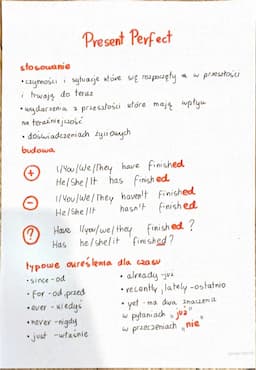 Present Perfect
stosowanie
• czynności i sytuacje które się rozpoczęły w przeszłości
i trwają do teraz
• wydarzenia z przeszłości które mają wpływ
na teraźniejszość
• doświadczeniach życiowych
budowa
+ I/You/We/They have finished
He/She/It has finished
- I/You/We/They haven't finished
He/She/It hasn't finished
? Have I/you/we/they finished?
Has he/she/it finished?
typowe określenia dla czasu
• since - od
• for - od, przed
• ever - kiedyś
• never - nigdy
• just - właśnie
• already - już
• recently, lately - ostatnio
• yet - ma dwa znaczenia
w pytaniach "już"
w przeczeniach "nie"